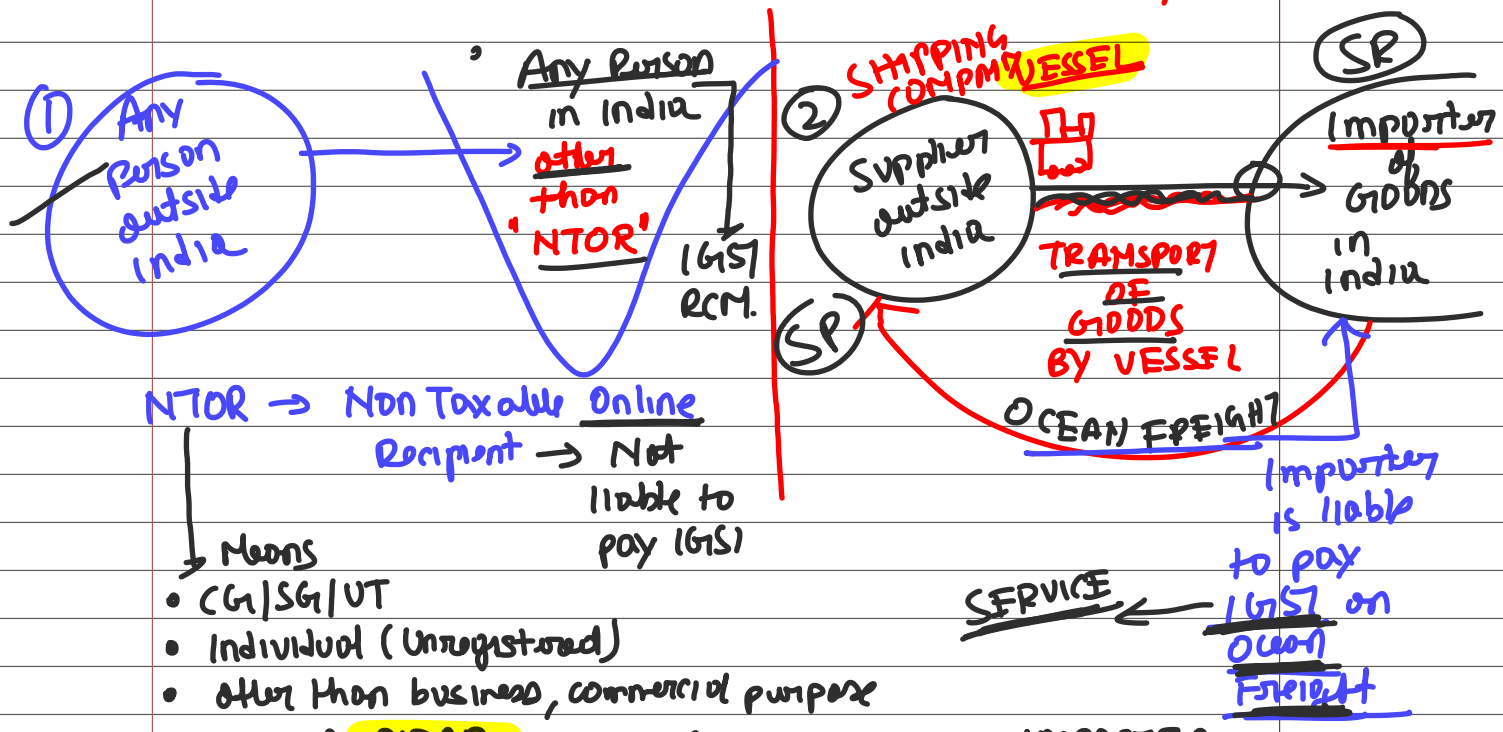 ①
Any
Person
outside
india
Any Person
in India
other
than
"NTOR"
IGST
RCM.
NTOR → Non Taxable Online
Recipient → Not
liable to
pay IGST
Means
• CG/SG/UT
• Individual (Unregistered)
• other than business, commercial purpose
②
SHIPPING
COMPANY
VESSEL
SR
Supplier
outside
india
SP
Importer
of
GOODS
in
india
TRANSPORT
OF
GOODS
BY VESSEL
OCEAN FREIGHT
Importer
is liable
to pay
IGST on
Ocean
Freight
SERVICE